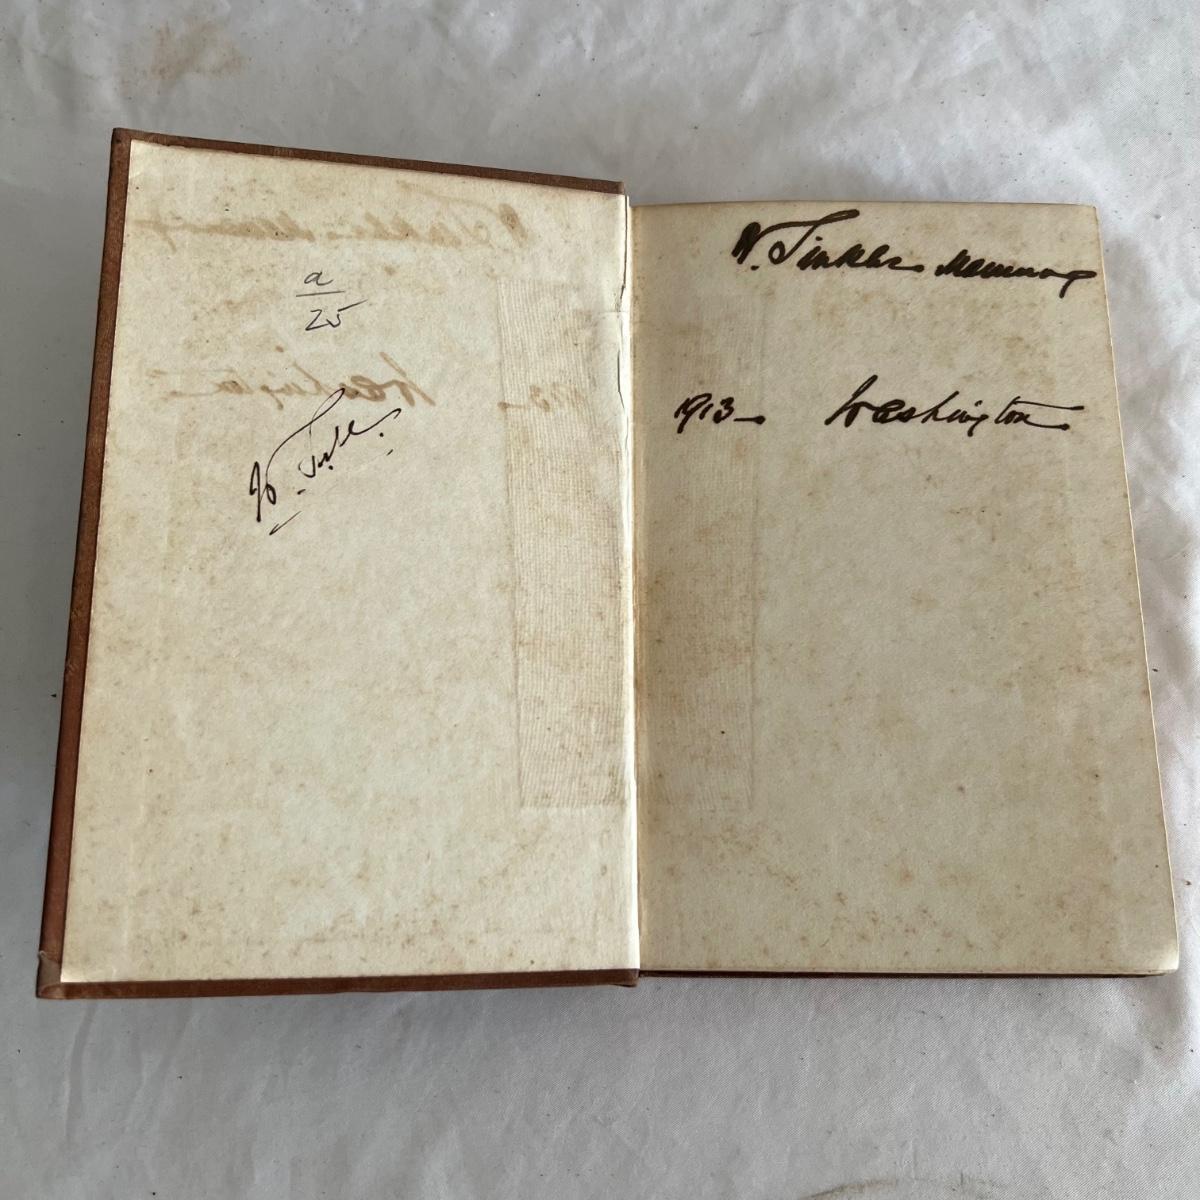 a
25
W. Tinkler.
W. Tinkler
1913 – Washington